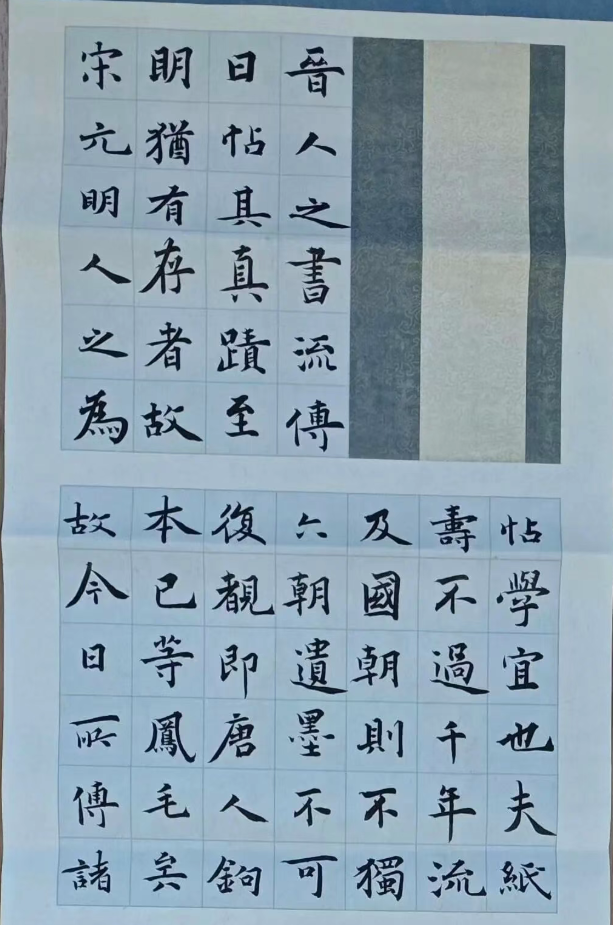 晉人之書流傳
日帖其真蹟至
明猶有存者故
宋元明人之為
帖學宜也夫紙
壽不過千年流
及國朝則不獨
六朝遺墨不可
復覩即唐人鉤
本已等鳳毛矣
故今日所傳諸